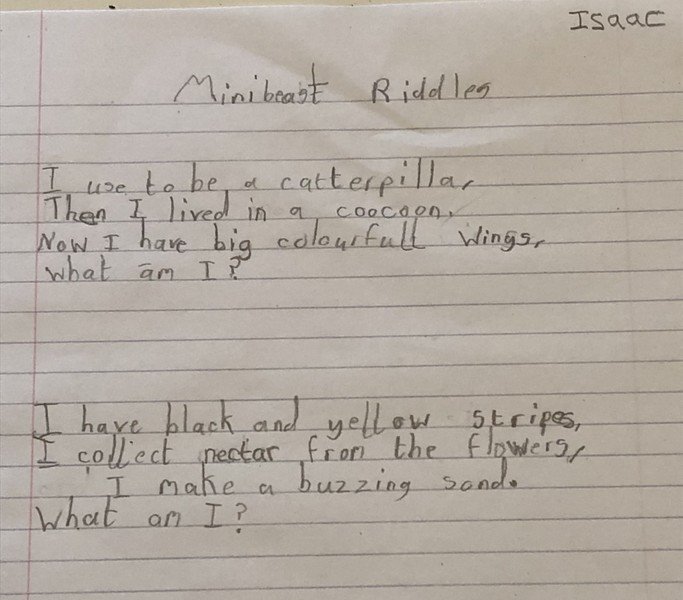 Isaac
Minibeast Riddles
I use to be a catterpilla,
Then I lived in a coocoon,
Now I have big colourfull wings,
What am I?
I have black and yellow stripes,
I collect nectar from the flowers,
I make a buzzing sond.
What am I?